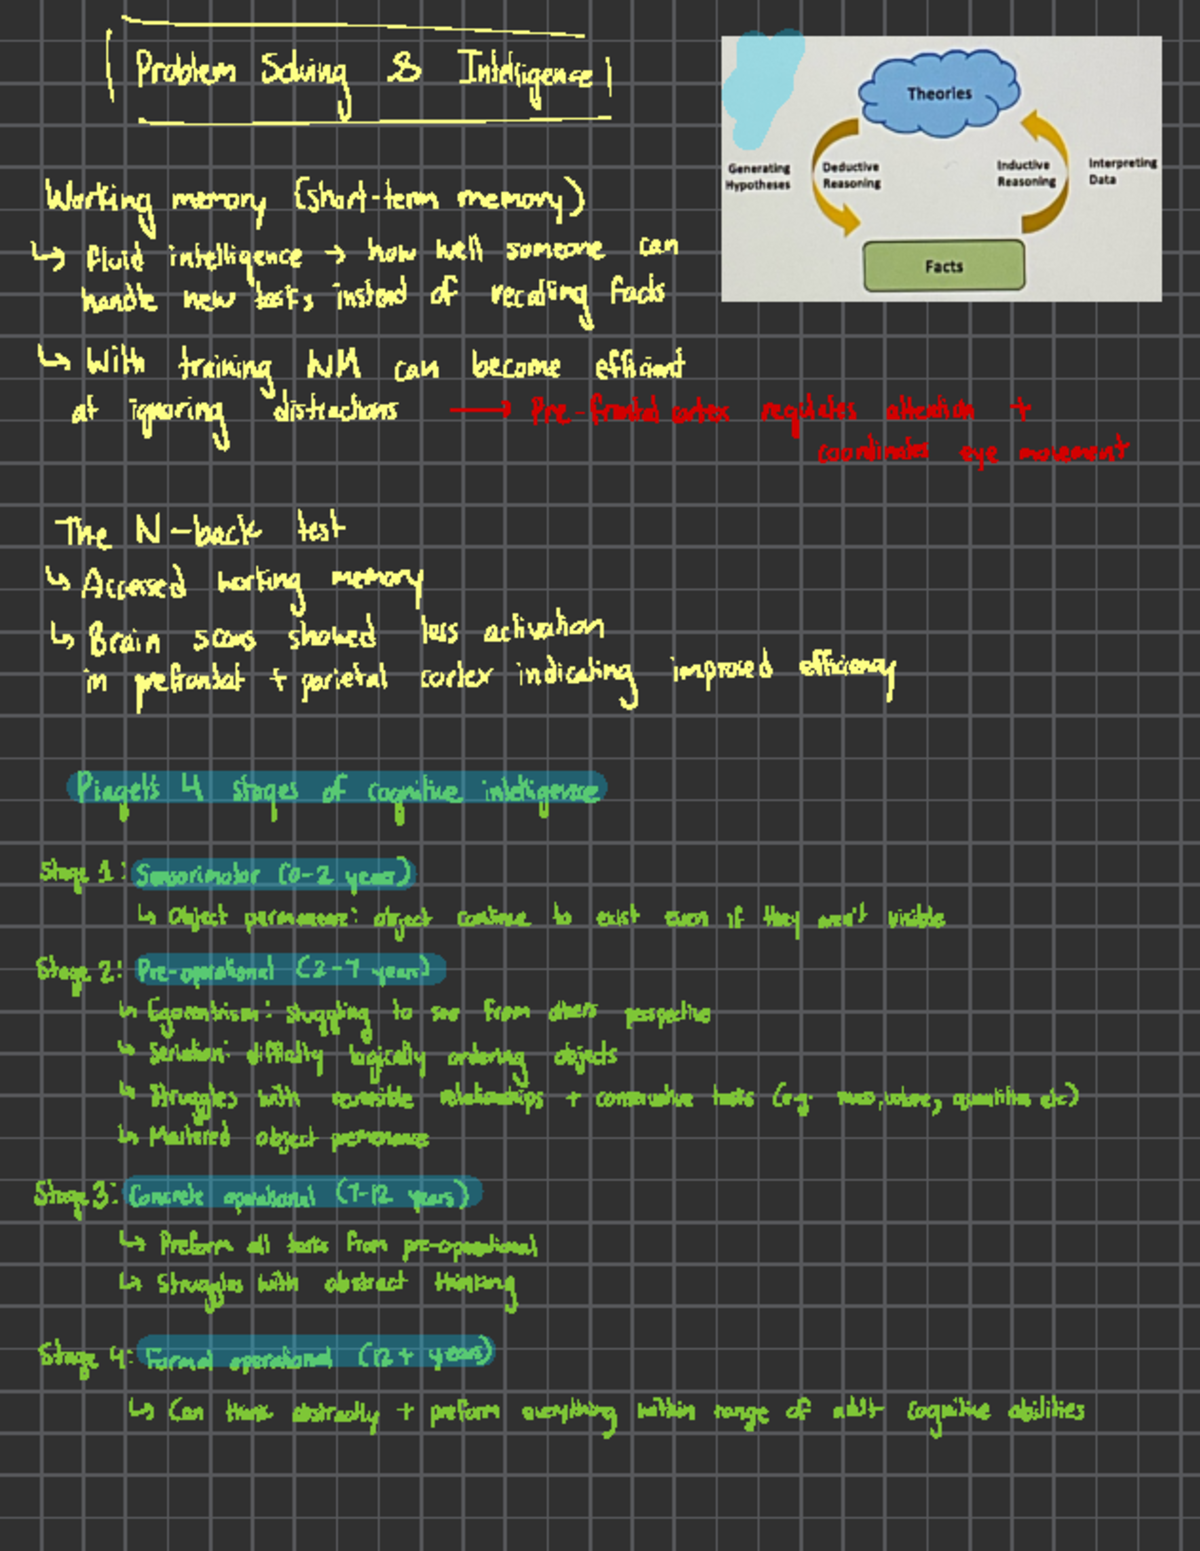 Problem Solving & Intelligence
Theories
Generating
Hypotheses
Deductive
Reasoning
Inductive
Reasoning
Interpreting
Data
Facts
Working memory (short-term memory)
↳ fluid intelligence → how well someone can
handle new tasks instead of recalling facts
↳ With training WM can become efficient
at ignoring distractions → Pre-frontal cortex regulates attention +
coordinates eye movement
The N-back test
↳ Accessed working memory
↳ Brain scans showed less activation
in prefrontal + parietal cortex indicating improved efficiency
Piaget's 4 stages of cognitive intelligence
Stage 1: Sensorimotor (0-2 years)
↳ Object permanence: object continue to exist even if they aren't visible
Stage 2: Pre-operational (2-7 years)
↳ Egocentrism: struggling to see from others perspective
↳ Seriation: difficulty logically ordering objects
↳ Struggles with reversible relationships + conservative tasks (e.g. mass, volume, quantities etc)
↳ Mastered object permanence
Stage 3: Concrete operational (7-12 years)
↳ Preform all tasks from pre-operational
↳ Struggles with abstract thinking
Stage 4: Formal operational (12+ years)
↳ Can think abstractly + preform everything within range of adult cognitive abilities